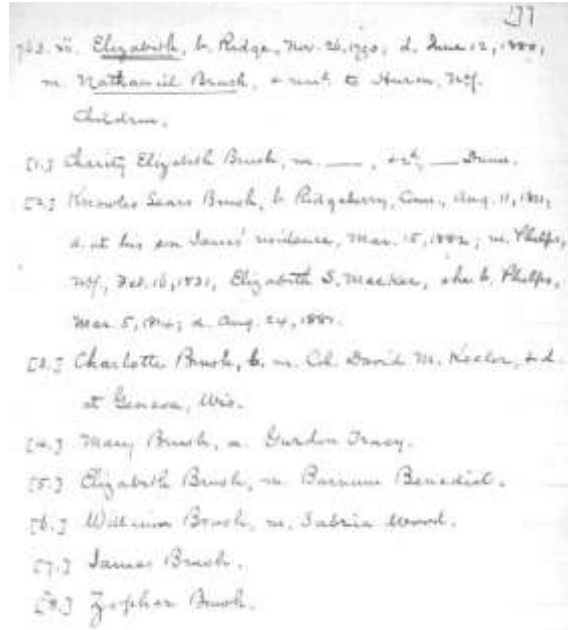 177
xii. Elizabeth, b. Ridge, Nov. 26, d. June 12,
m. Nathaniel Brush, & to Huron, N.Y.
Children.
[1.] Charity Elizabeth Brush, m. ——, & 2d, —— Dunn.
[2.] Knowles Sears Brush, b. Ridgebury, Conn., Aug. 11,
d. at his son James' residence, Mar. 15, 1882; m. Phelps,
N.Y., Feb. 16, 1831, Elizabeth S. she b. Phelps,
Mar. 5, 1814; d. Aug. 24,
[3.] Charlotte Brush, b. m. Col. David M. Keeler, & d.
at Geneva, Wis.
[4.] Mary Brush, m. Gurdon Tracy.
[5.] Elizabeth Brush, m. Barnum Benedict.
[6.] William Brush, m. Sabria Wood.
[7.] James Brush.
[8.] Zophar Brush.